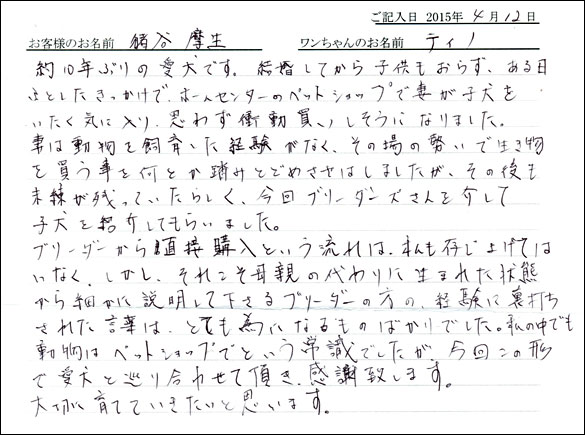 ご記入日 2015年 4月12日
お客様のお名前 猪谷 摩生 ワンちゃんのお名前 ティノ
約10年ぶりの愛犬です。結婚してから子供もおらず、ある日
ふとしたきっかけで、ホームセンターのペットショップで妻が子犬を
いたく気に入り、思わず衝動買いしそうになりました。
妻は動物を飼育した経験がなく、その場の勢いで生き物
を買う事を何とか踏みとどめさせはしましたが、その後も
未練が残っていたらしく、今回ブリーダーズさんを介して
子犬を紹介してもらいました。
ブリーダーから直接購入という流れは、私も存じ上げては
いなく、しかし、それこそ母親の代わりに生まれた状態
から細かに説明して下さるブリーダーの方の、経験に裏打ち
された言葉は、とても為になるものばかりでした。私の中でも
動物はペットショップでという常識でしたが、今回この形
で愛犬と巡り合わせて頂き、感謝致します。
大切に育てていきたいと思います。